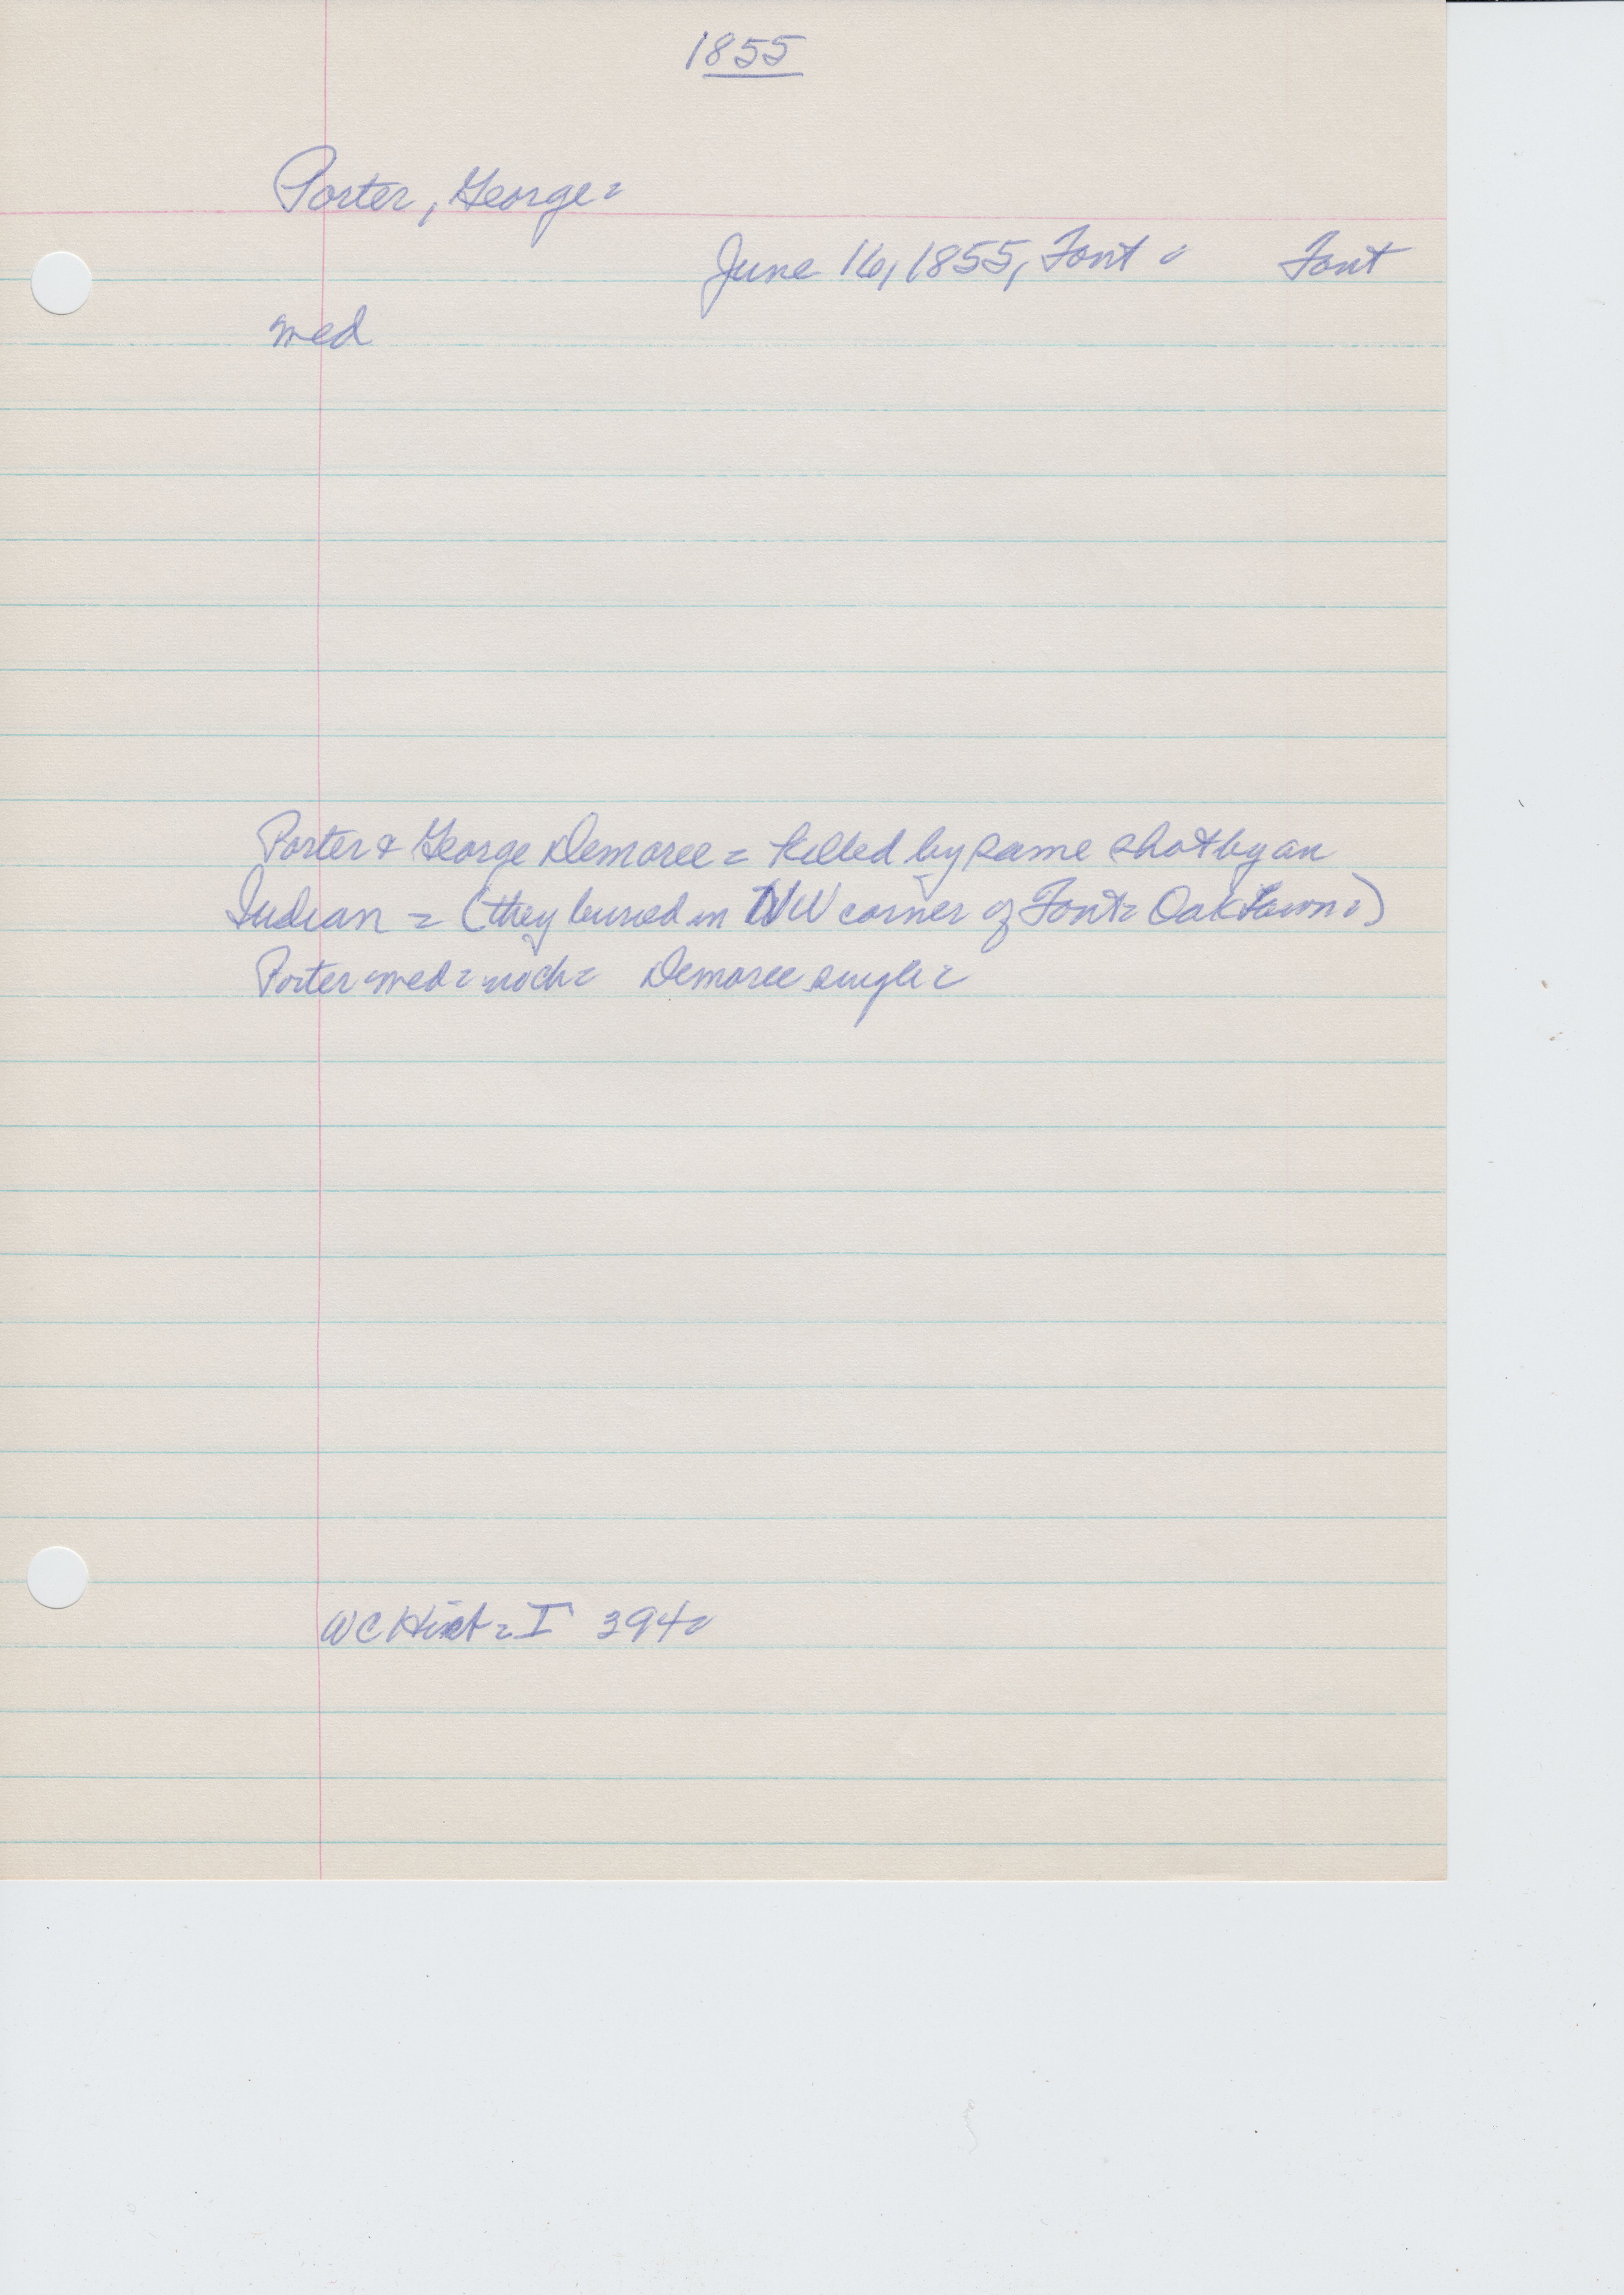 1855
Porter, George=
June 16, 1855, Font = Font
med
Porter & George Demoree = killed by same shot by an
Indian = (they buried in NW corner of Font= Oak Lawn=)
Porter med = no ch= Demoree single=
WC Hist = I 394=